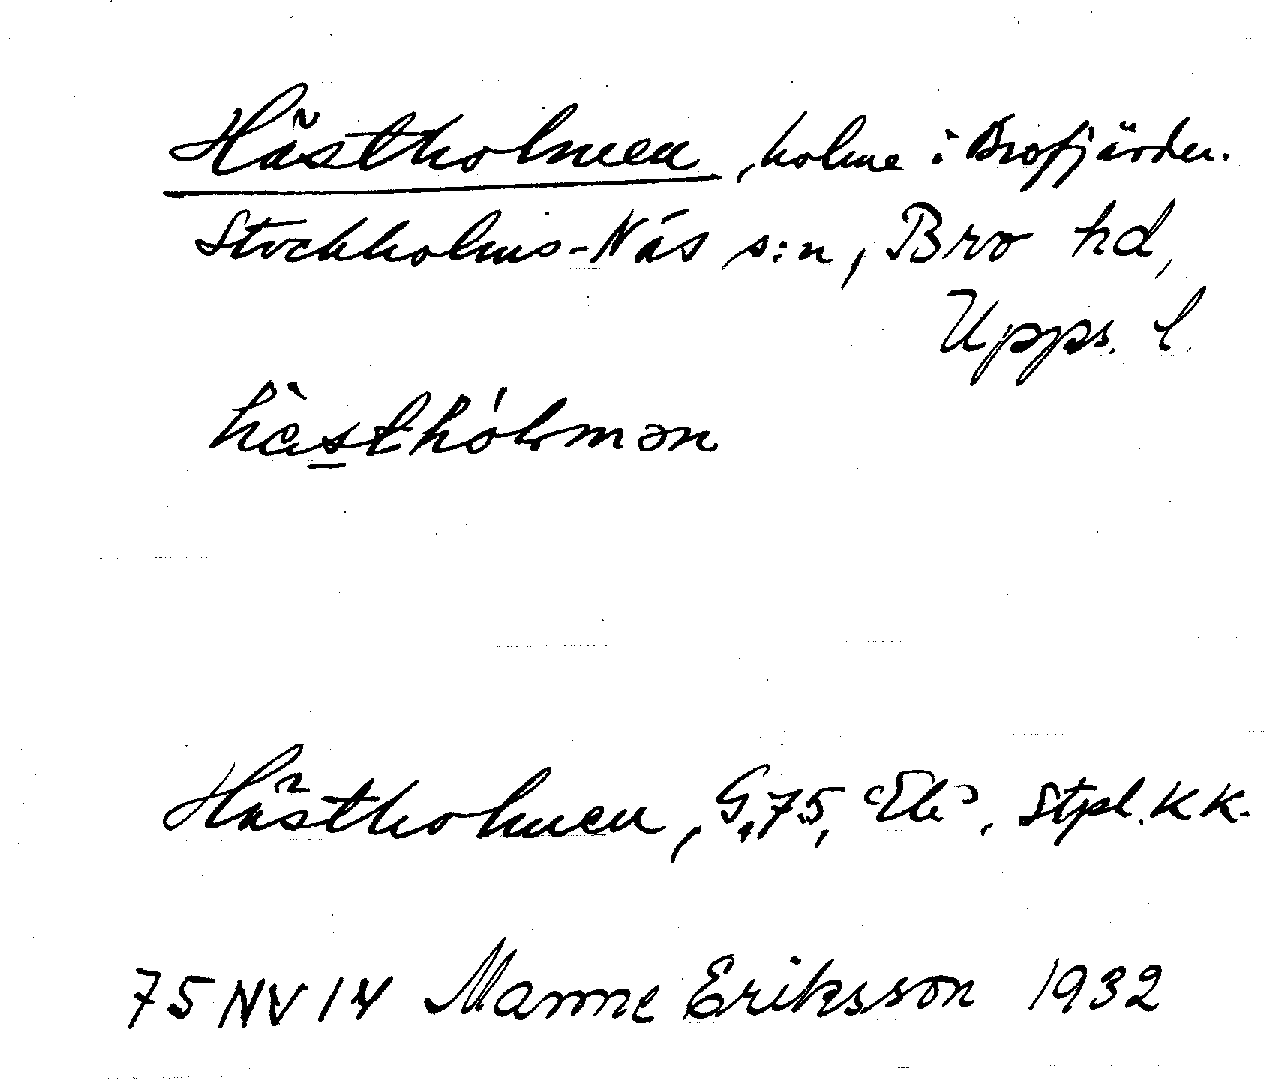 Hästholmen, holme i Brofjärden.
Stockholms-Näs s:n, Bro hd,
Upps. l.
hàsthólmən
Hästholmen, G. 75, "Ek", Stpl. KK.
75 NV 14 Manne Eriksson 1932